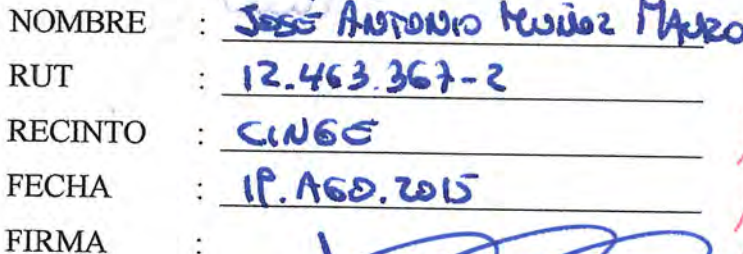 NOMBRE : JOSÉ ANTONIO MUÑOZ
RUT : 12.463.367-2
RECINTO : CINGE
FECHA : 19. AGO. 2015
FIRMA :